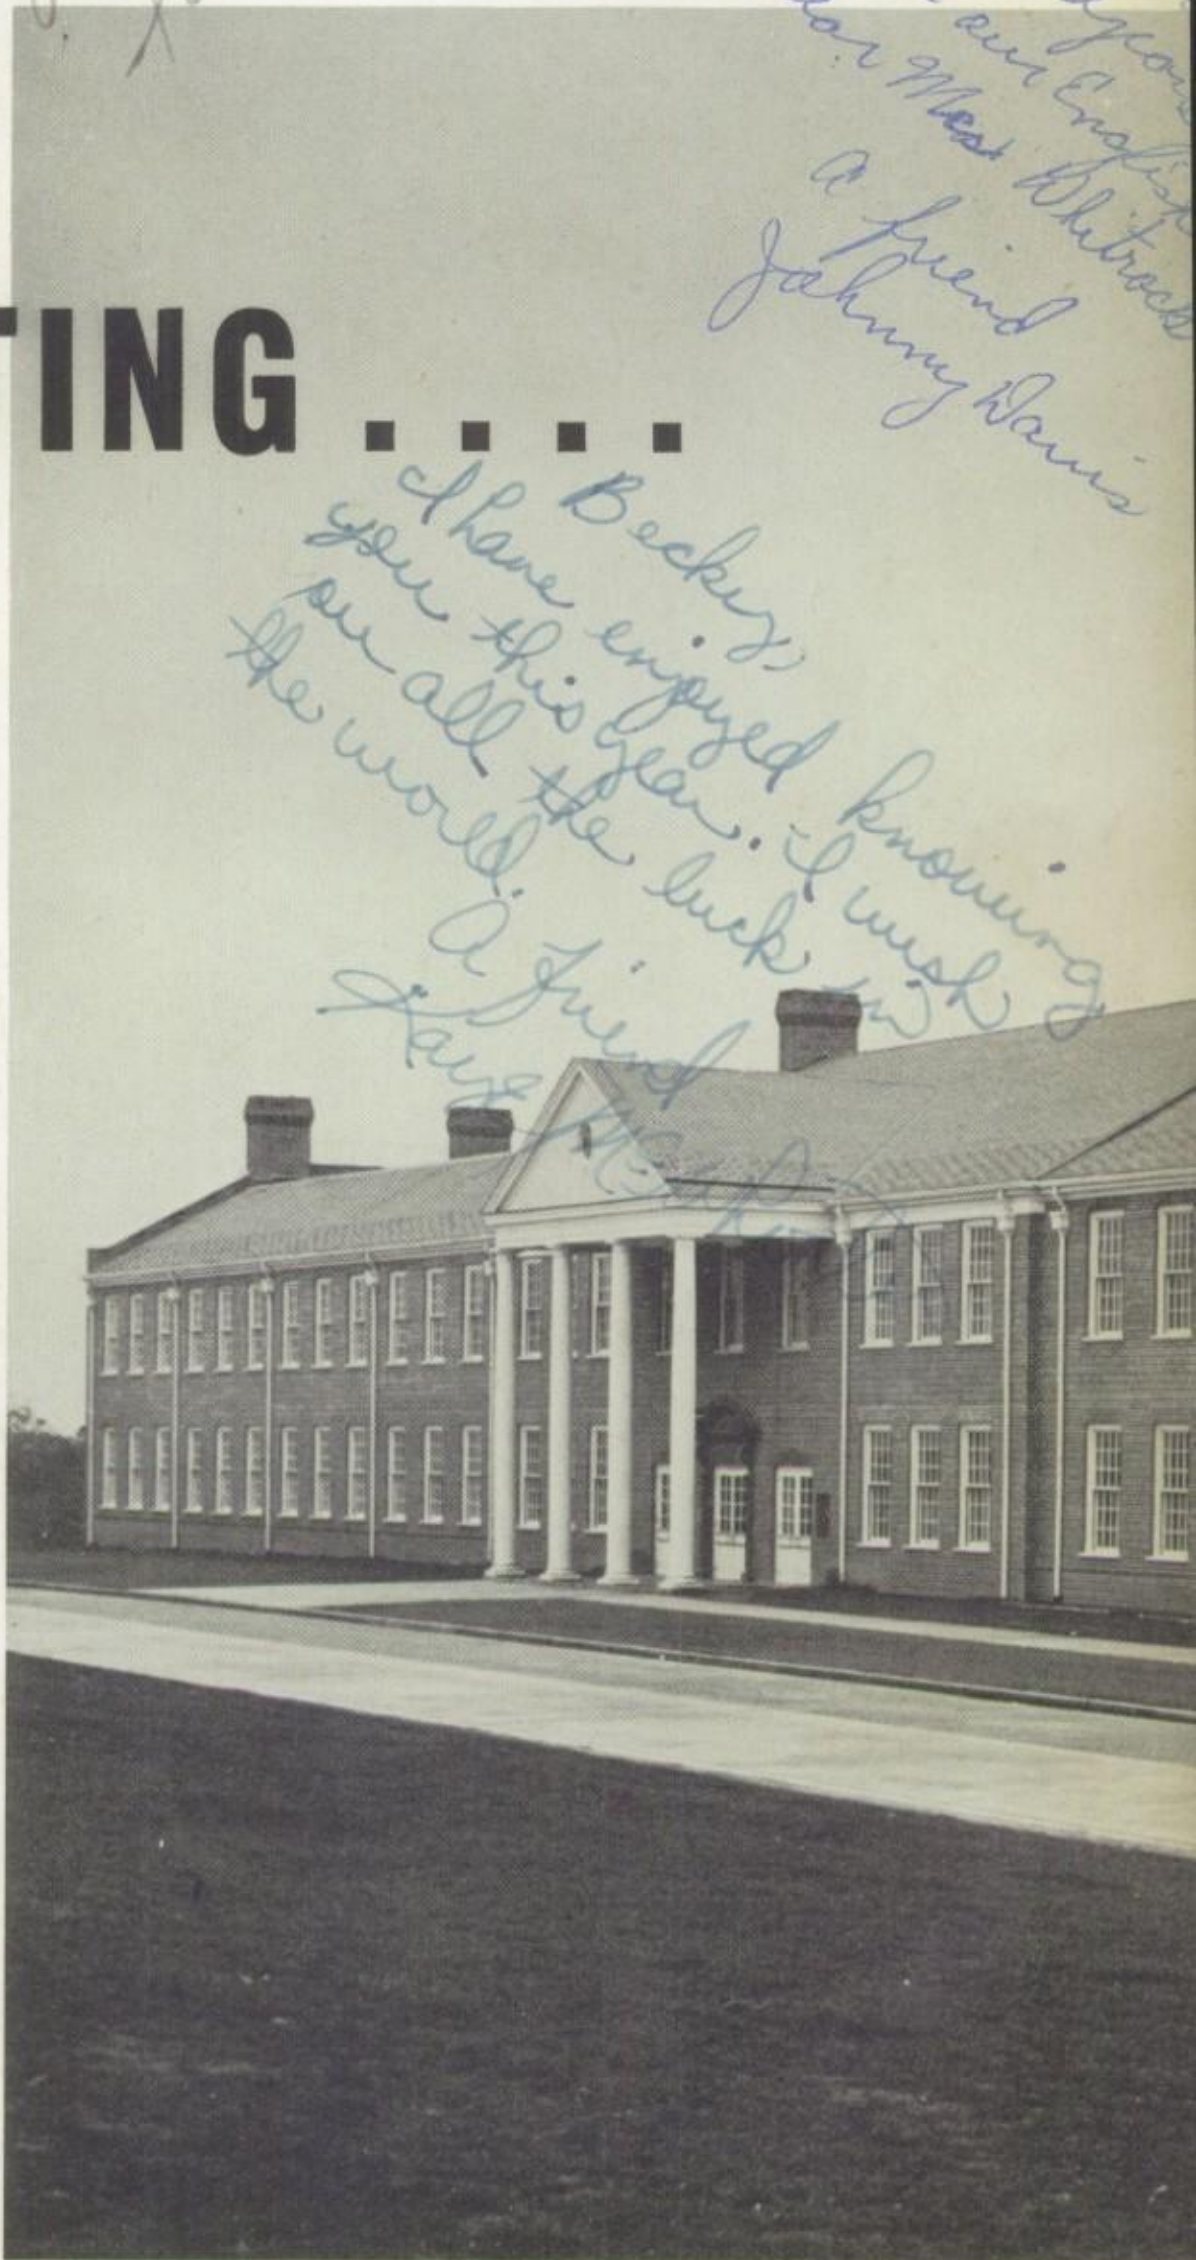 our English
Mrs Whitrock
a friend
Johnny Davis
TING ....
Becky,
I have enjoyed knowing
you this year. I wish
you all the luck in
the world.
A Friend
Kaye